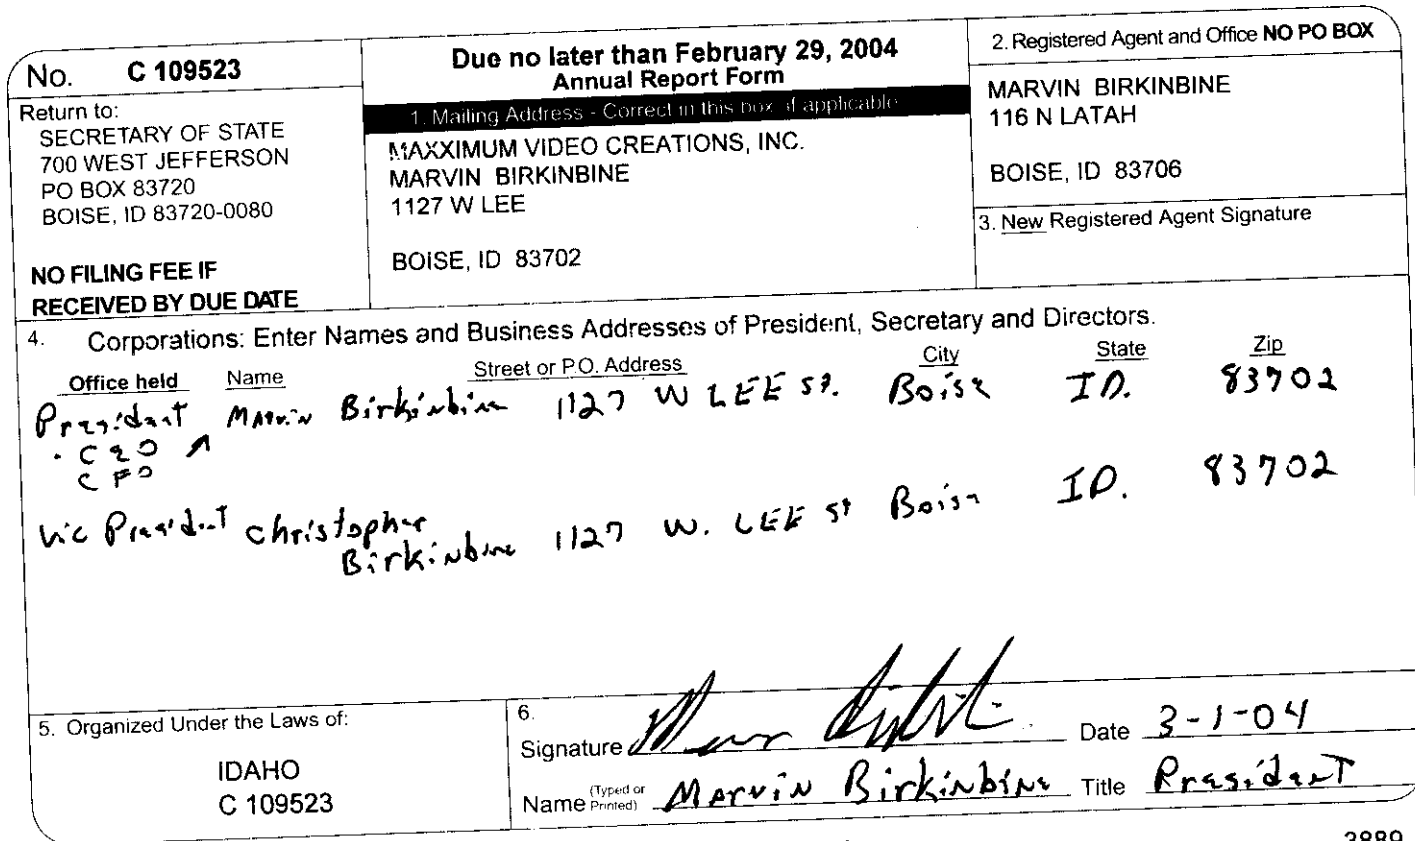 No. C 109523
Return to:
SECRETARY OF STATE
700 WEST JEFFERSON
PO BOX 83720
BOISE, ID 83720-0080
NO FILING FEE IF
RECEIVED BY DUE DATE
Due no later than February 29, 2004
Annual Report Form
1. Mailing Address - Correct in this box if applicable
MAXXIMUM VIDEO CREATIONS, INC.
MARVIN BIRKINBINE
1127 W LEE
BOISE, ID 83702
2. Registered Agent and Office NO PO BOX
MARVIN BIRKINBINE
116 N LATAH
BOISE, ID 83706
3. New Registered Agent Signature
4. Corporations: Enter Names and Business Addresses of President, Secretary and Directors.
Office held Name Street or P.O. Address City State Zip
President Marvin Birkinbine 1127 W LEE St. Boise ID. 83702
CEO
CFO
Vic President Christopher
Birkinbine 1127 W. LEE St Boise ID. 83702
5. Organized Under the Laws of:
IDAHO
C 109523
6.
Signature Date 3-1-04
Name (Typed or Printed) Marvin Birkinbine Title President
3889